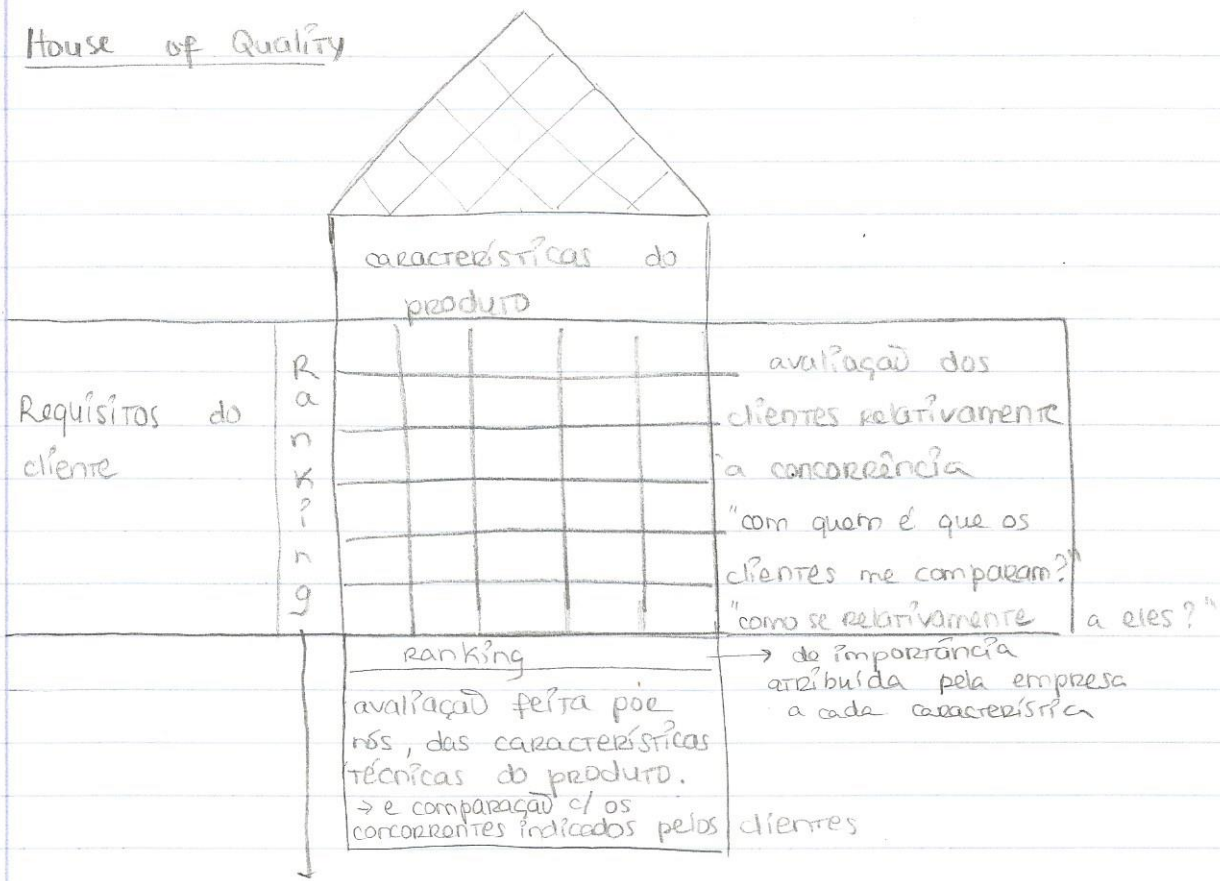 House of Quality
características do
produto
Requisitos do
cliente
Ranking
avaliação dos
clientes relativamente
à concorrência
"com quem é que os
clientes me comparam?"
"como se relativamente a eles?"
Ranking
→ de importância
atribuída pela empresa
a cada característica
avaliação feita por
nós, das características
técnicas do produto.
→ e comparação c/ os
concorrentes indicados pelos clientes